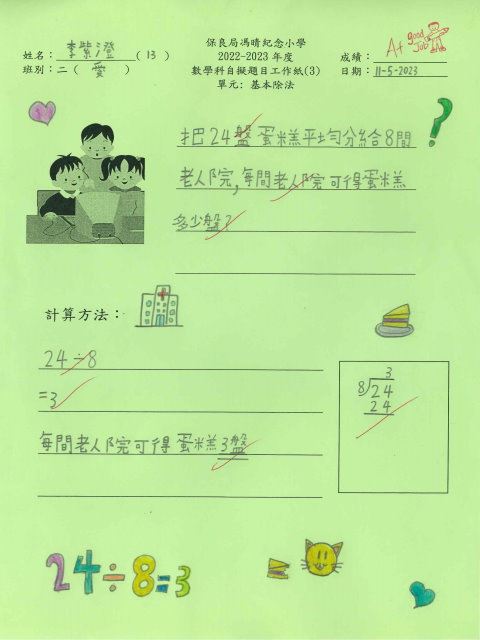 保良局馮晴紀念小學
姓名：李紫澄(13)
2022-2023 年度
成績：A+ good Job
班別：二(愛)
數學科自擬題目工作紙(3)
日期：11-5-2023
單元：基本除法
把24盤蛋糕平均分給8間
老人院,每間老人院可得蛋糕
多少盤?
計算方法：
24÷8
=3
3
8 24
24
每間老人院可得蛋糕3盤
24÷8=3